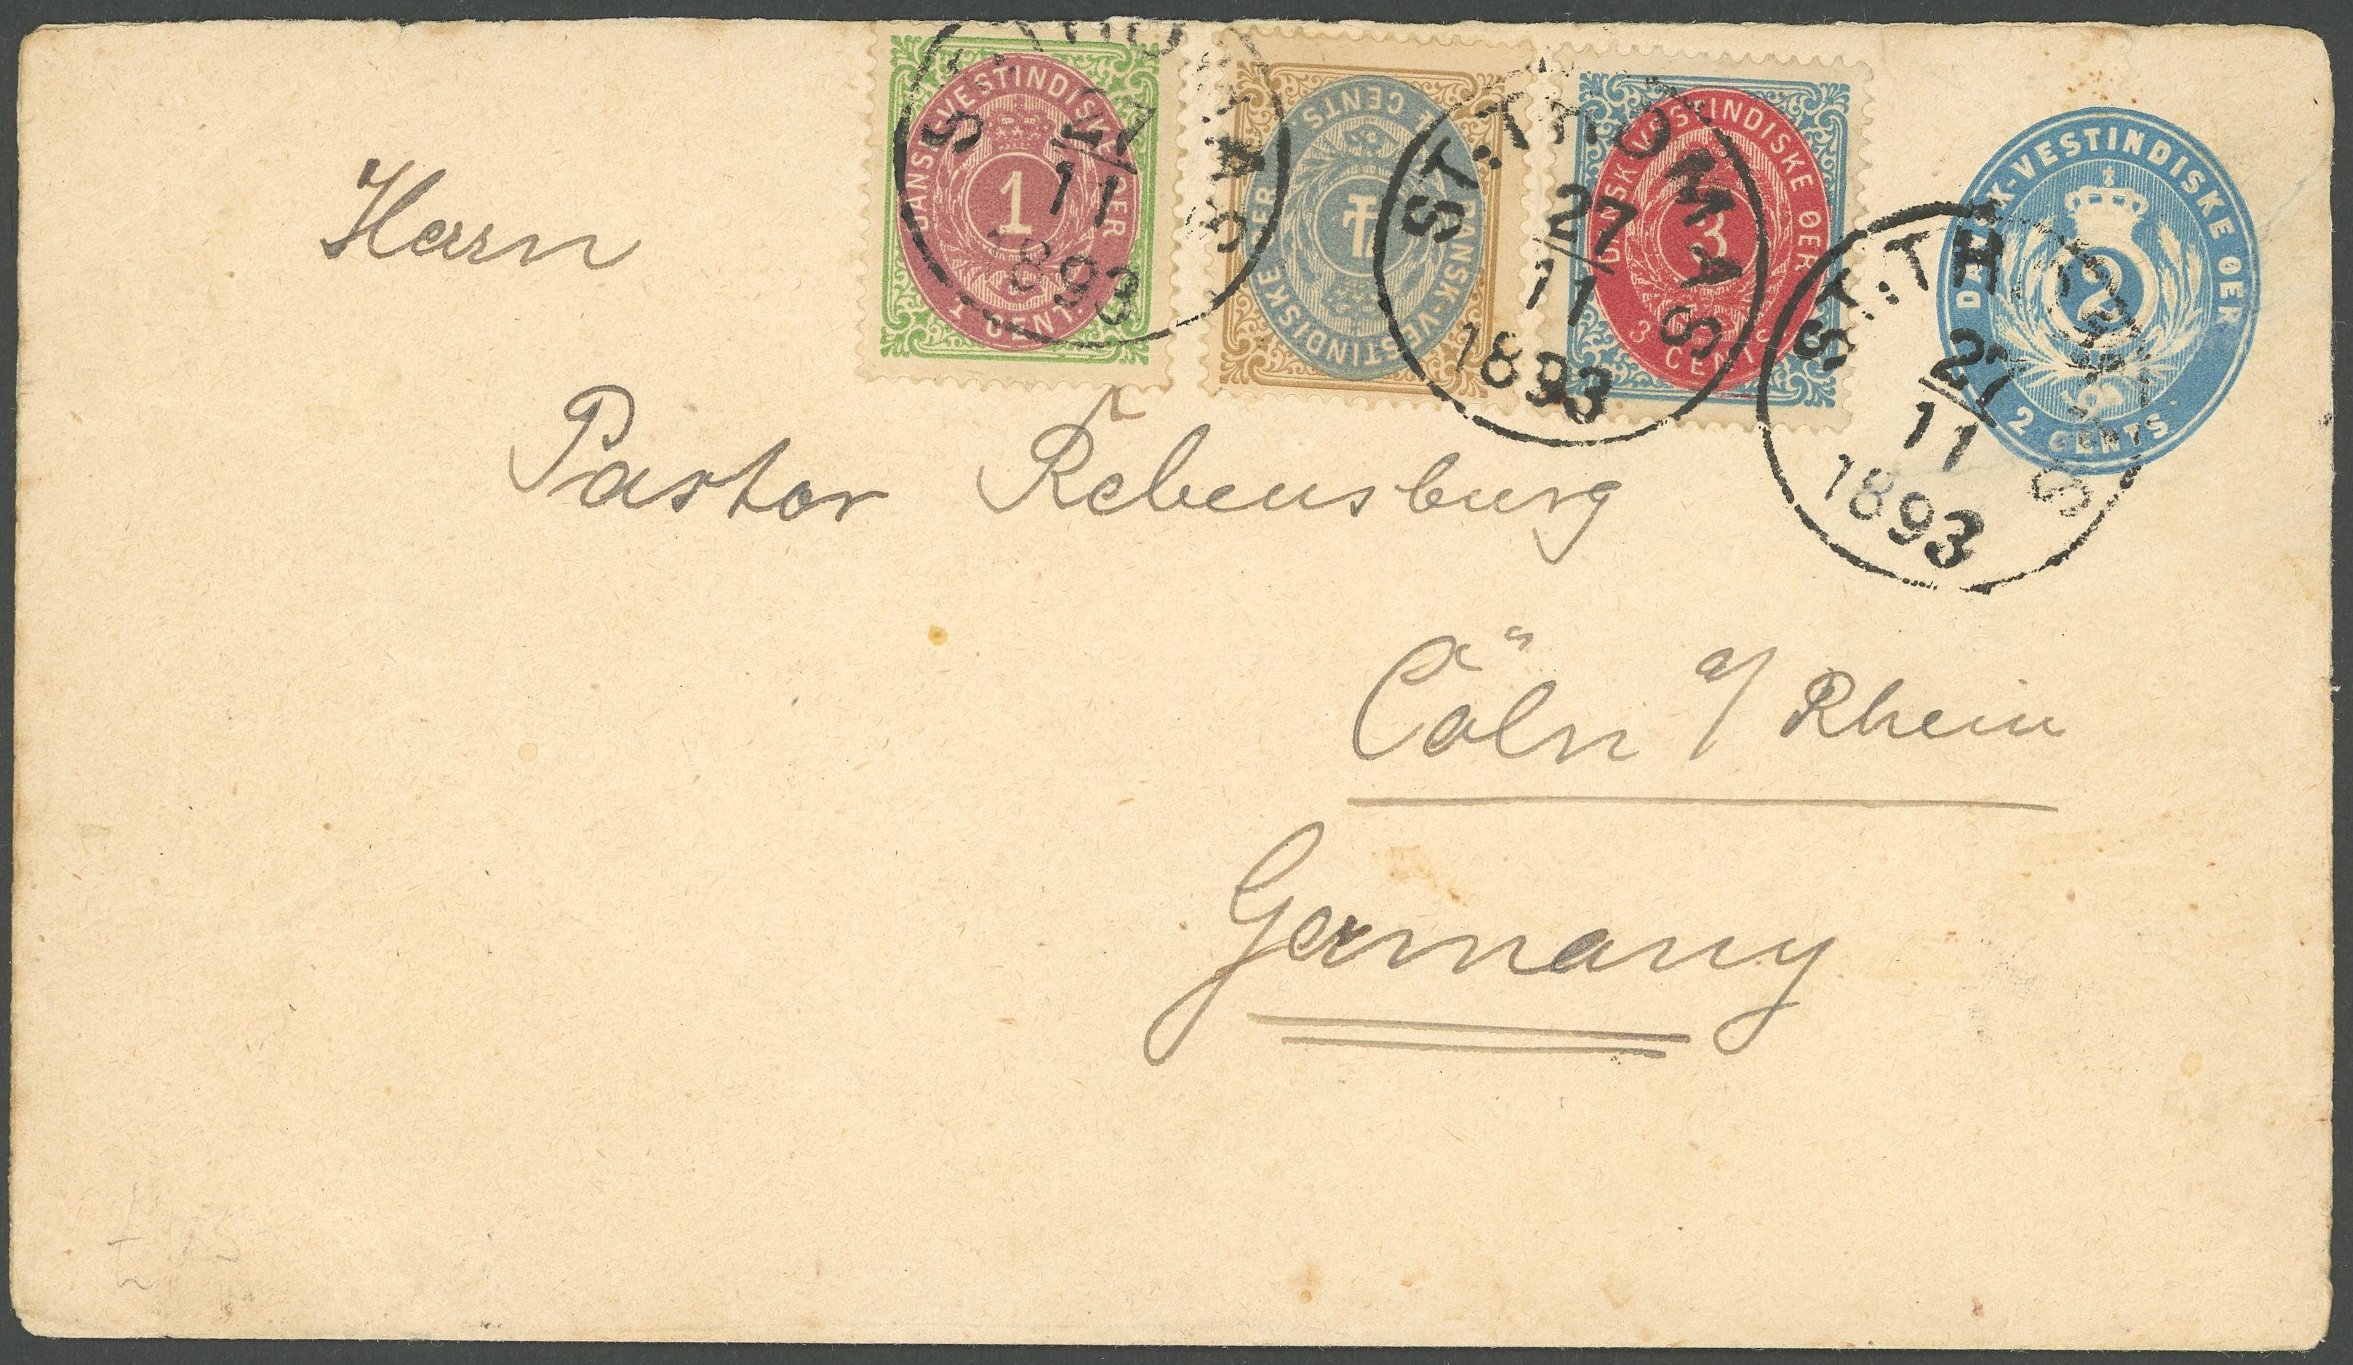 DANSK-VESTINDISKE ØER
1
1 CENT
DANSK-VESTINDISKE ØER
4
4 CENTS
DANSK-VESTINDISKE ØER
3
3 CENTS
DANSK-VESTINDISKE ØER
2
2 CENTS
ST: THOMAS
27
11
1893
ST: THOMAS
27
11
1893
ST: THOMAS
27
11
1893
Herrn
Pastor Rebensburg
Cöln a/ Rhein
Germany